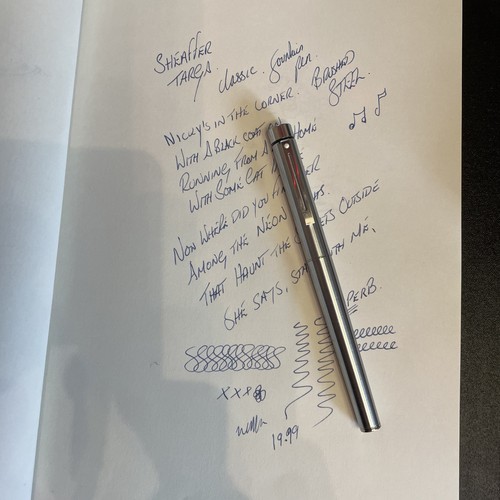 SHEAFFER
TARGA. CLASSIC. fountain pen. BRUSHED STEEL.
NICKY'S IN THE CORNER.
WITH A BLACK COAT ON
RUNNING FROM A HOME
WITH SOME CAT
NOW WHERE DID YOU
AMONG THE NEON
THAT HAUNT THE OUTSIDE
SHE SAYS, WITH ME,
xxx
19.99